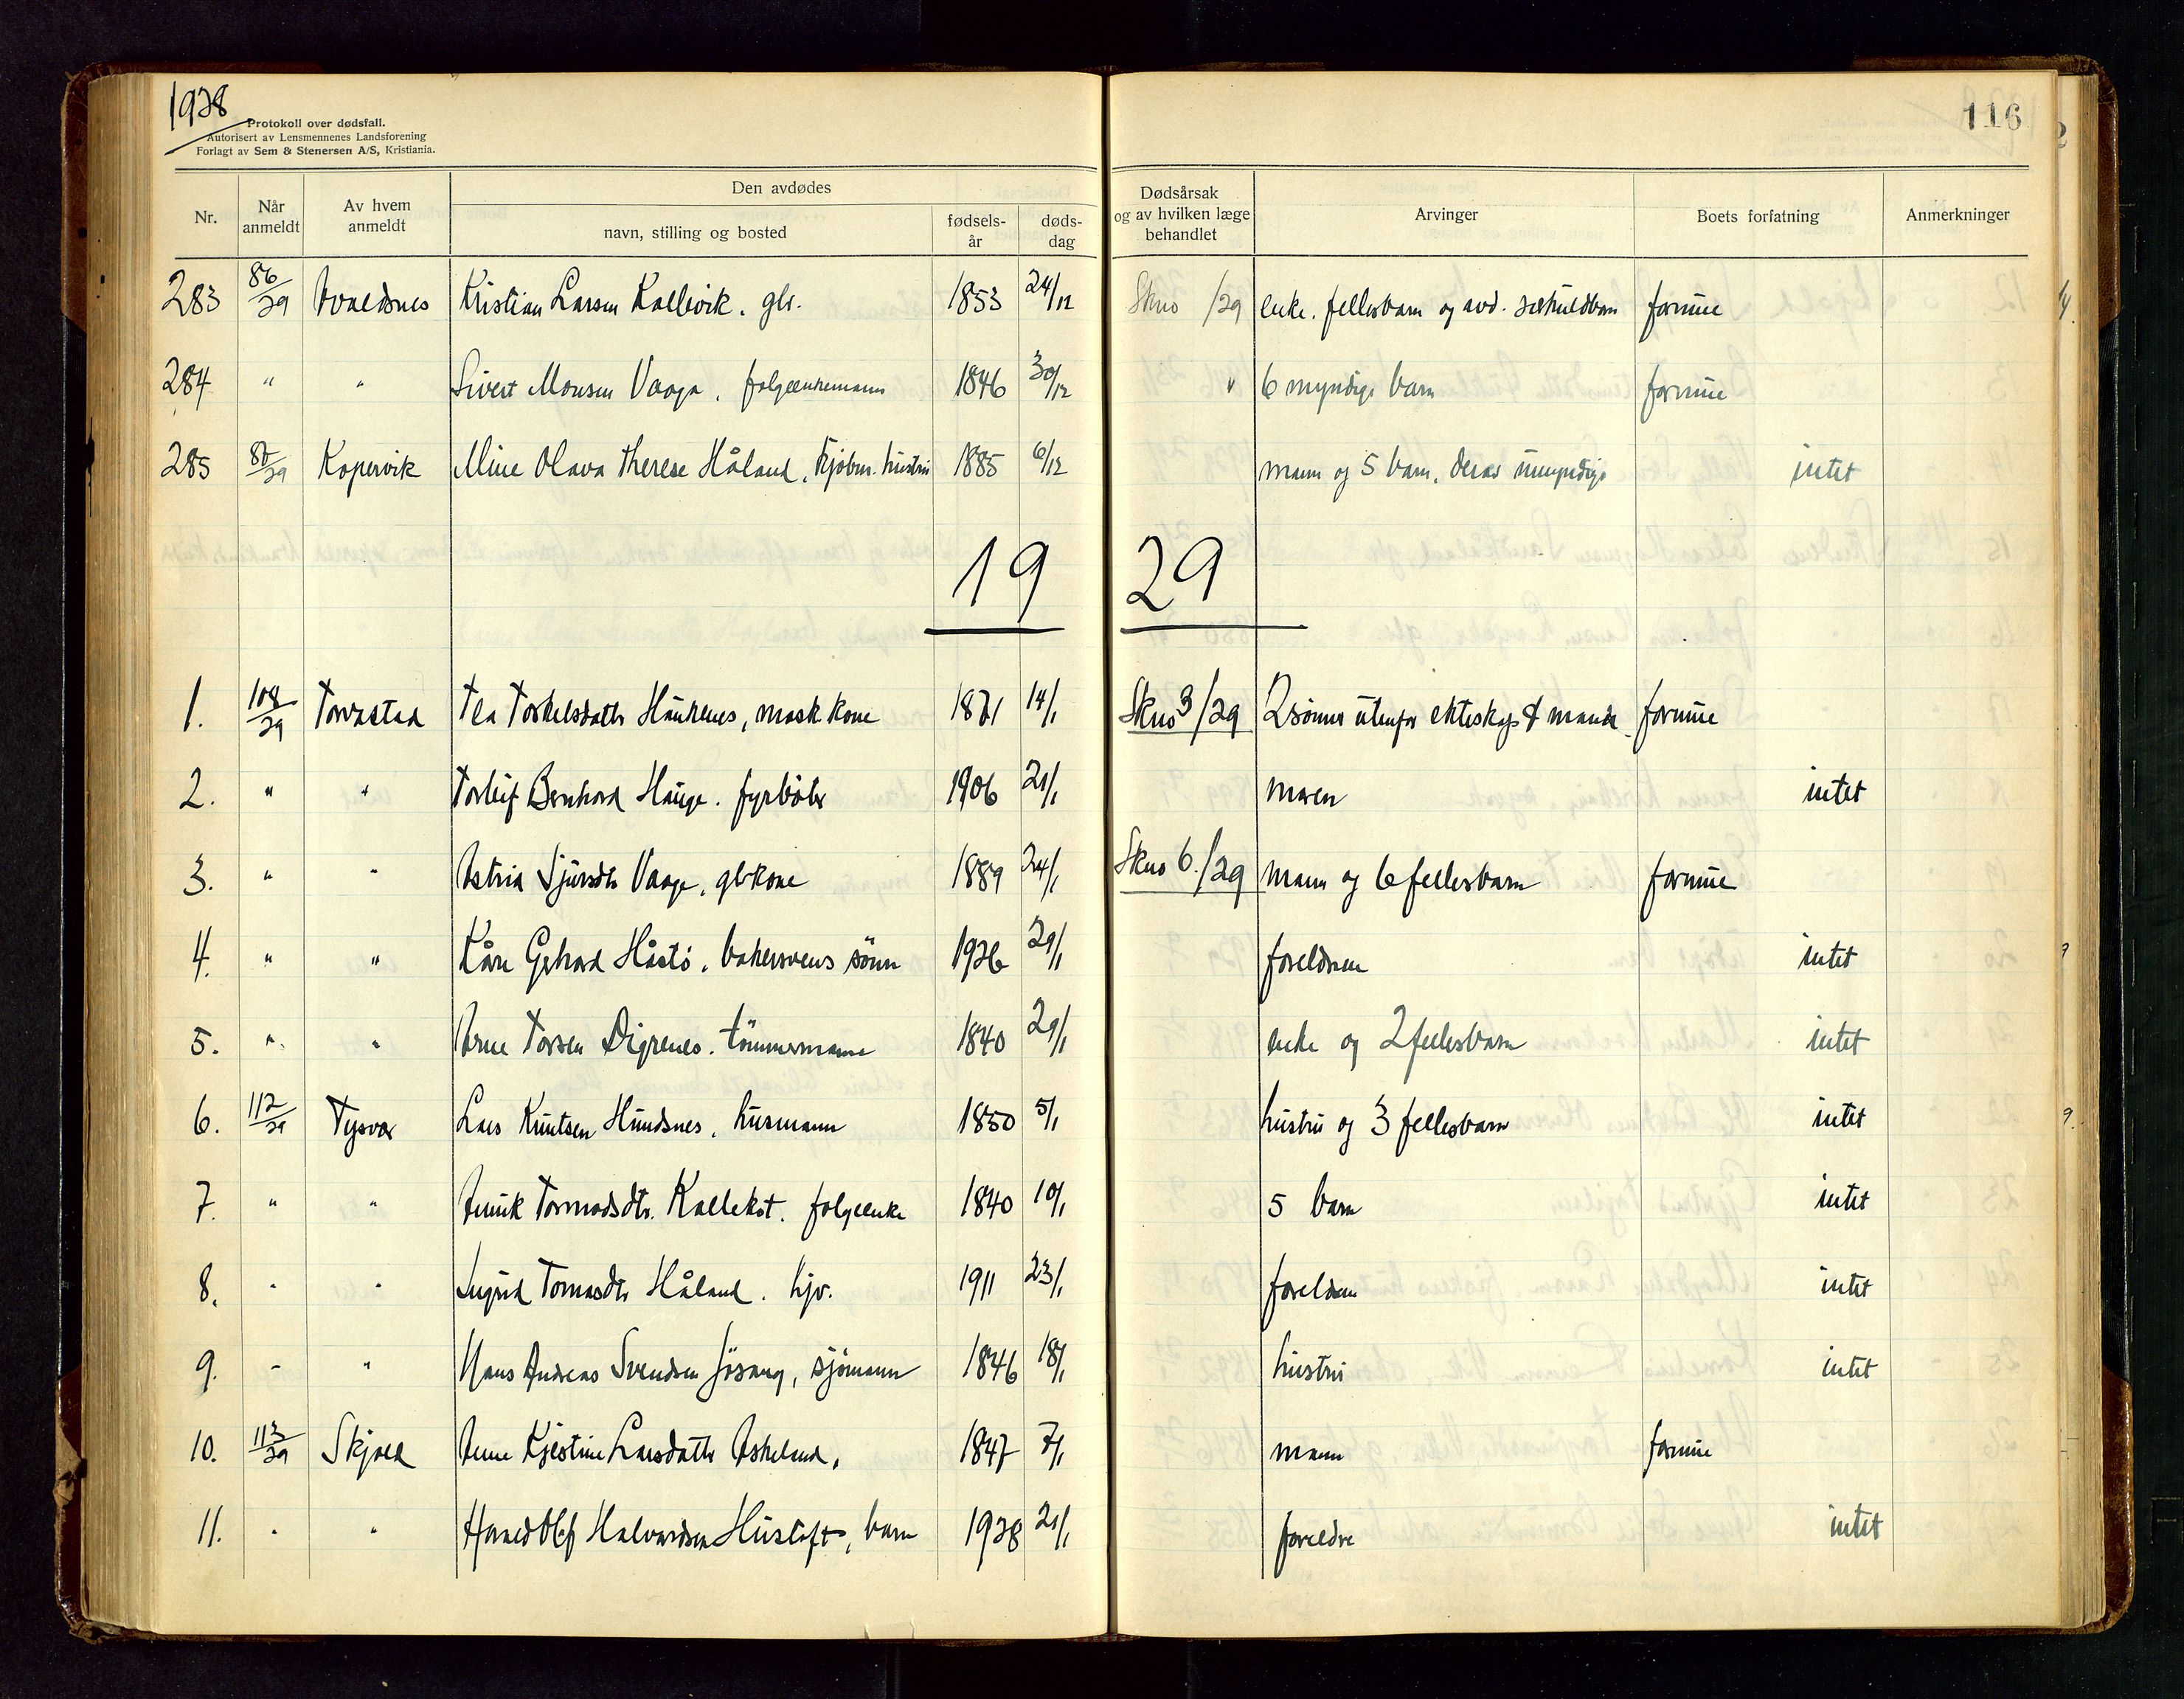 1928
Protokoll over dødsfall.
Autorisert av Lensmennenes Landsforening
Forlagt av Sem & Stenersen A/S, Kristiania.
116
Nr. Når anmeldt Av hvem anmeldt Den avdødes navn, stilling og bosted fødselsår dødsdag Dødsårsak og av hvilken læge behandlet Arvinger Boets forfatning Anmerkninger
283 86/29 Avaldsnes Kristian Larsen Kallevik. gbr. 1853 24/12 Skuo /29 enke. fellesbarn og avd. særkuldbarn formue
284 " " Sivert Monsen Vaage. folgeenkemann 1846 30/12 " 6 myndige barn formue
285 /29 Kopervik Mine Olava Therese Håland, kjøbm. hustru 1885 6/12 mann og 5 barn, derav umyndige intet
19 29
1. 108/29 Torvastad Tea Torkelsdatter Haukenes, mask kone 1871 14/1 Skuo 3/29 2 sønner utenfor ekteskap & mann formue
2. " " Torleif Bernhard Hauge. fyrbøter 1906 21/1 moren intet
3. " " Astrid Sjursdtr Vaage, gbrkone 1889 24/1 Skuo 6./29 mann og 6 fellesbarn formue
4. " " Kåre Gerhard Håstø. bakersvens sønn 1926 29/1 foreldrene intet
5. " " Arne Torsen Digrenes. tømmermann 1840 29/1 enke og 2 fellesbarn intet
6. 112/29 Tysvær Lars Knutsen Hundsnes, husmann 1850 5/1 hustru og 3 fellesbarn intet
7. " " Tormodsdtr. Kallekot. folgeenke 1840 10/1 5 barn intet
8. " " Ingrid Tomasdtr Håland. hjv. 1911 23/1 foreldrene intet
9. " " Hans Andreas Svendsen Jøsang, sjømann 1846 18/1 hustru intet
10. 113/29 Skjold Anne Kjestine Larsdatter Askeland, 1847 7/1 mann formue
11. " " Harald Olaf Halvardsen Hustoft, barn 1928 21/1 foreldre intet